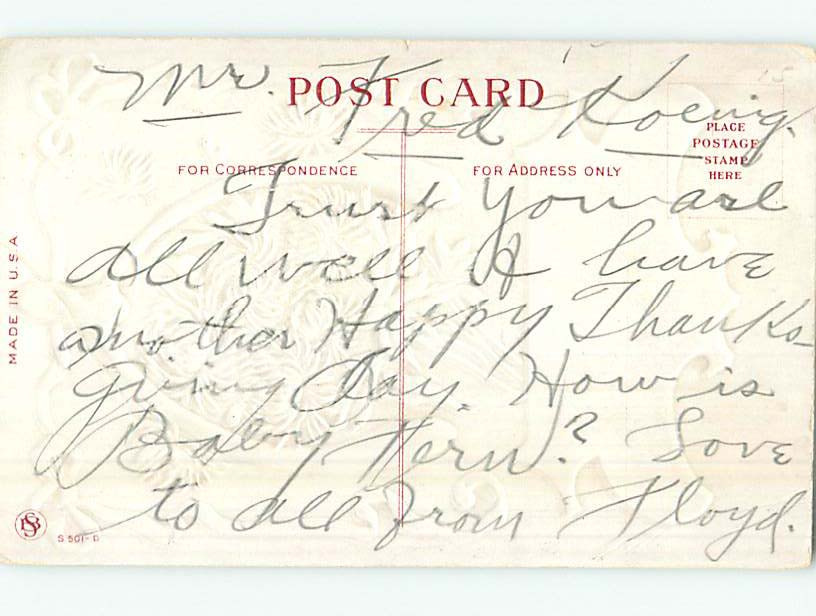 15
Mr. Fred Koenig.
POST CARD
PLACE
POSTAGE
STAMP
HERE
FOR CORRESPONDENCE
FOR ADDRESS ONLY
Trust you are
all well & have
another Happy Thanks-
giving Day. How is
Baby Fern? Love
to all from Floyd.
MADE IN U.S.A
S
S 501-D